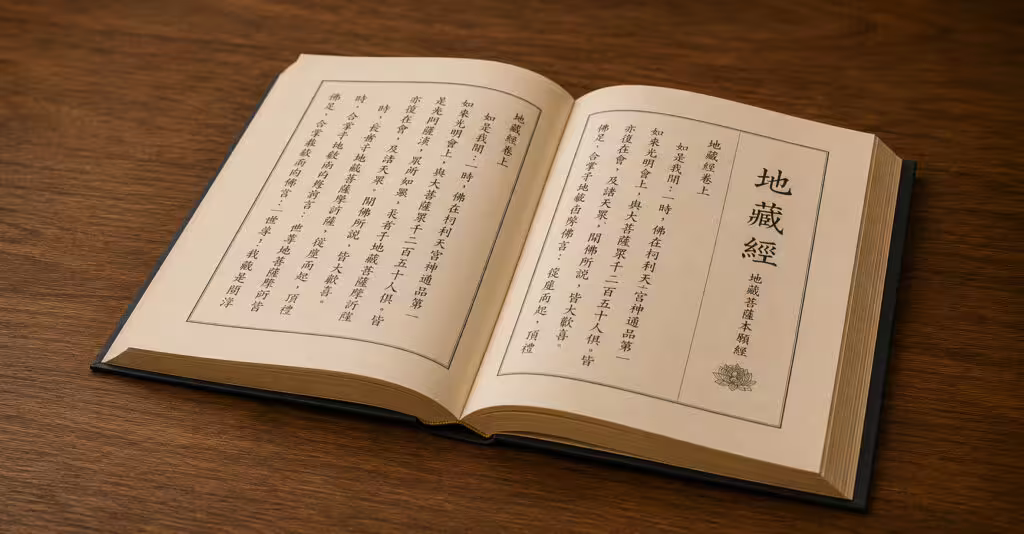 地藏經
地藏菩薩本願經
地藏經卷上
如是我聞:一時,佛在忉利天宮神通品第一
如來光明會上,與大菩薩眾千二百五十人俱。皆
亦復在會,及諸天眾,聞佛所說,皆大歡喜。
佛足,合掌 地藏 摩佛言: 從座而起,頂禮
地藏經卷上
如是我聞:一時,佛在 利天宮神通品第一
如來光明會上,與大菩薩眾千二百五十人俱。皆
是光 眾所如眾,長者子地藏菩薩摩訶薩
亦復在會,及諸天眾,聞佛所說,皆大歡喜。
時,長者子地藏菩薩摩訶薩,從座而起,頂禮
時,合掌 地 言: 世尊地菩薩摩訶
佛足,合掌 佛言: 世尊,我 是